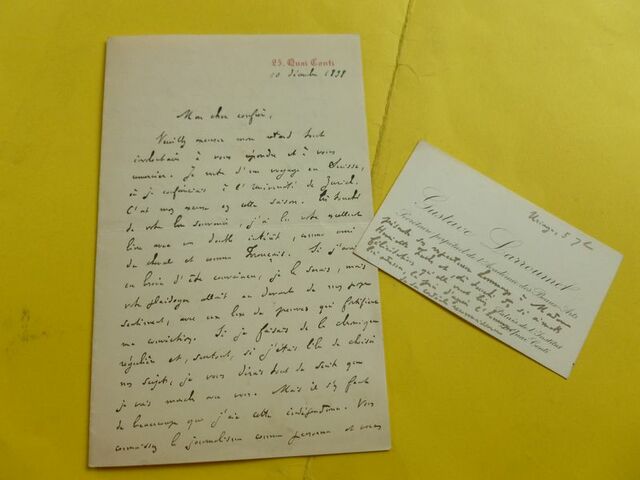 25, Quai Conti
10 décembre 1898
Mon cher confrère,
Veuillez excuser mon retard tout
involontaire à vous répondre et à vous
remercier. Je rentre d'un voyage en Suisse,
où je conférenciais à l'Université de Zurich.
C'est mon excuse en cette saison. Très touché
de votre bon souvenir, j'ai lu votre excellent
livre avec un double intérêt, comme ami
du cheval et comme Français. Si j'avais
eu besoin d'être convaincu, je le serais, mais
votre plaidoyer allait au devant de mon propre
sentiment, avec un luxe de preuves qui fortifient
ma conviction. Si je faisais de la chronique
régulière et, surtout, si j'étais libre de choisir
mes sujets, je vous dirais tout de suite que
je vais marcher avec vous. Mais il s'en faut
de beaucoup que j'aie cette indépendance. Vous
connaissez le journalisme comme personne et vous
Gustave Larroumet
Secrétaire perpétuel de l'Académie des Beaux-Arts
présente ses respectueux hommages à Madame
Palais de l'Institut
Quai Conti